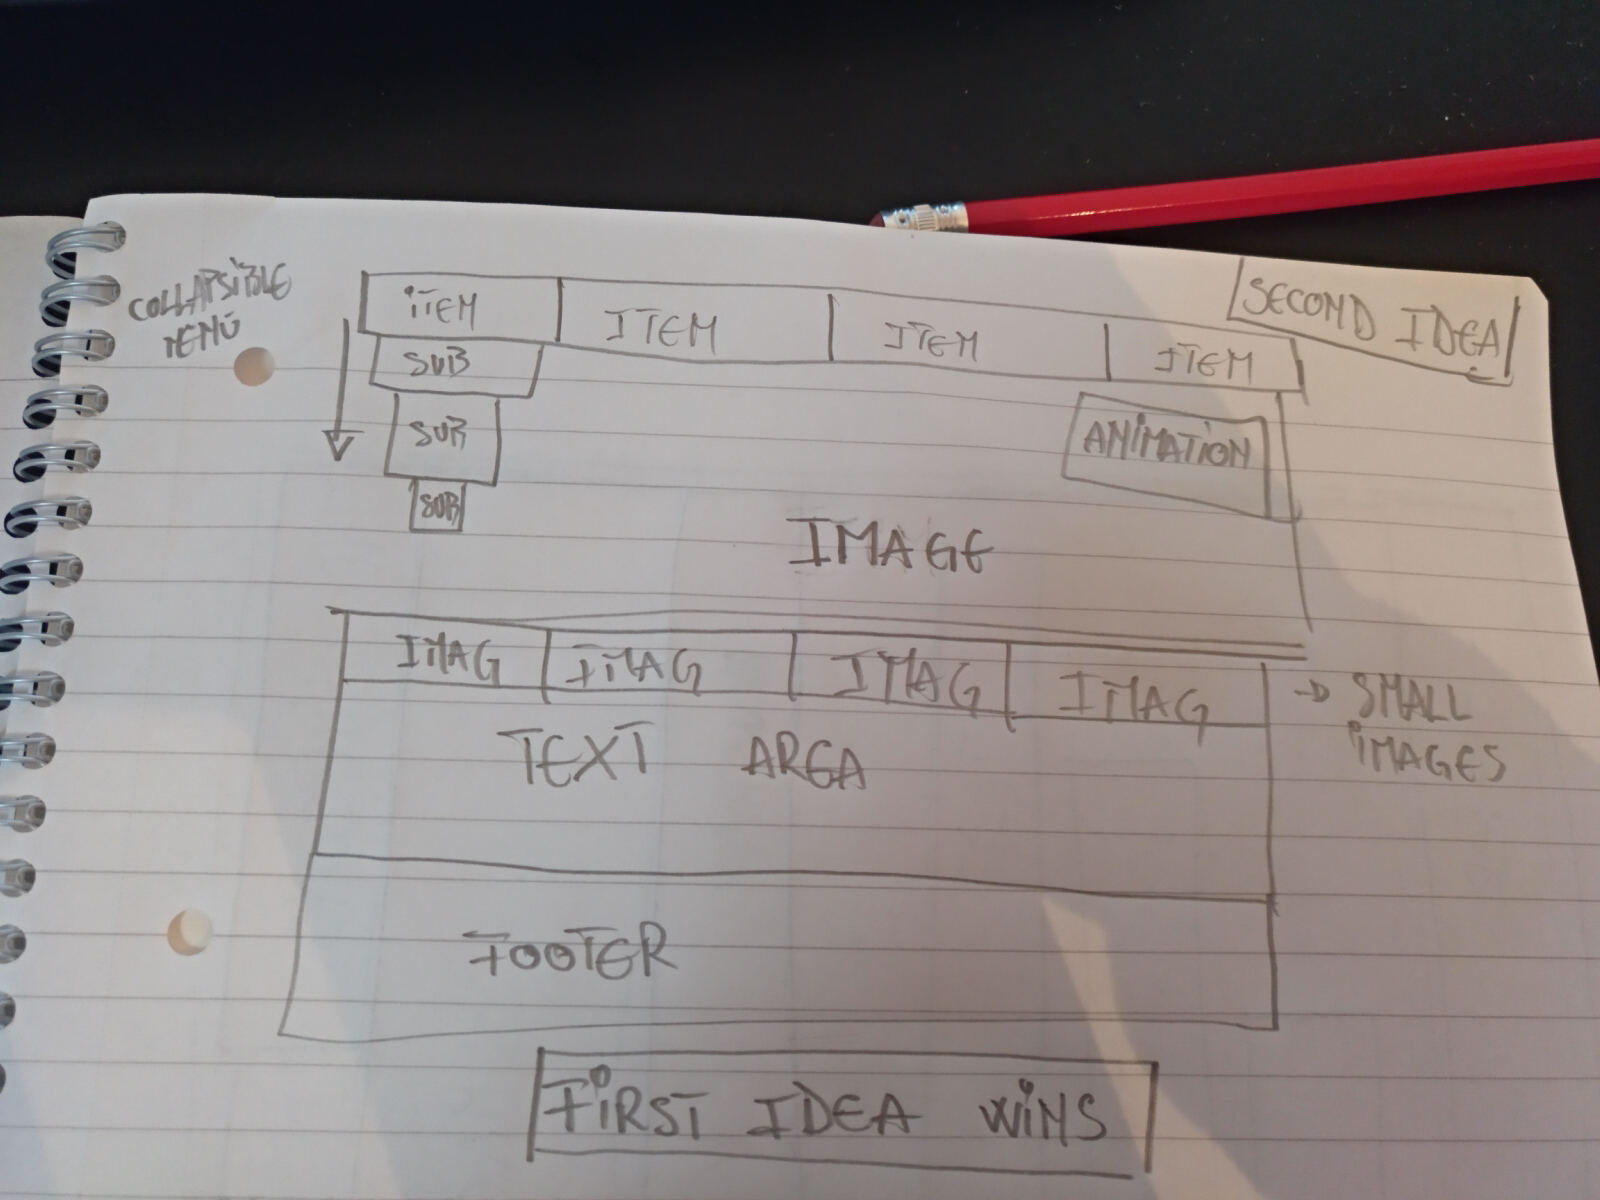 COLLAPSIBLE
MENÚ
ITEM ITEM ITEM ITEM
SECOND IDEA
SUB
SUB
SUB
ANIMATION
IMAGE
IMAG IMAG IMAG IMAG
→ SMALL
IMAGES
TEXT AREA
FOOTER
FIRST IDEA WINS